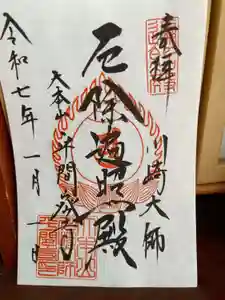 奉拝
川崎大師
厄除遍照殿
大本山平間寺
令和七年一月一日